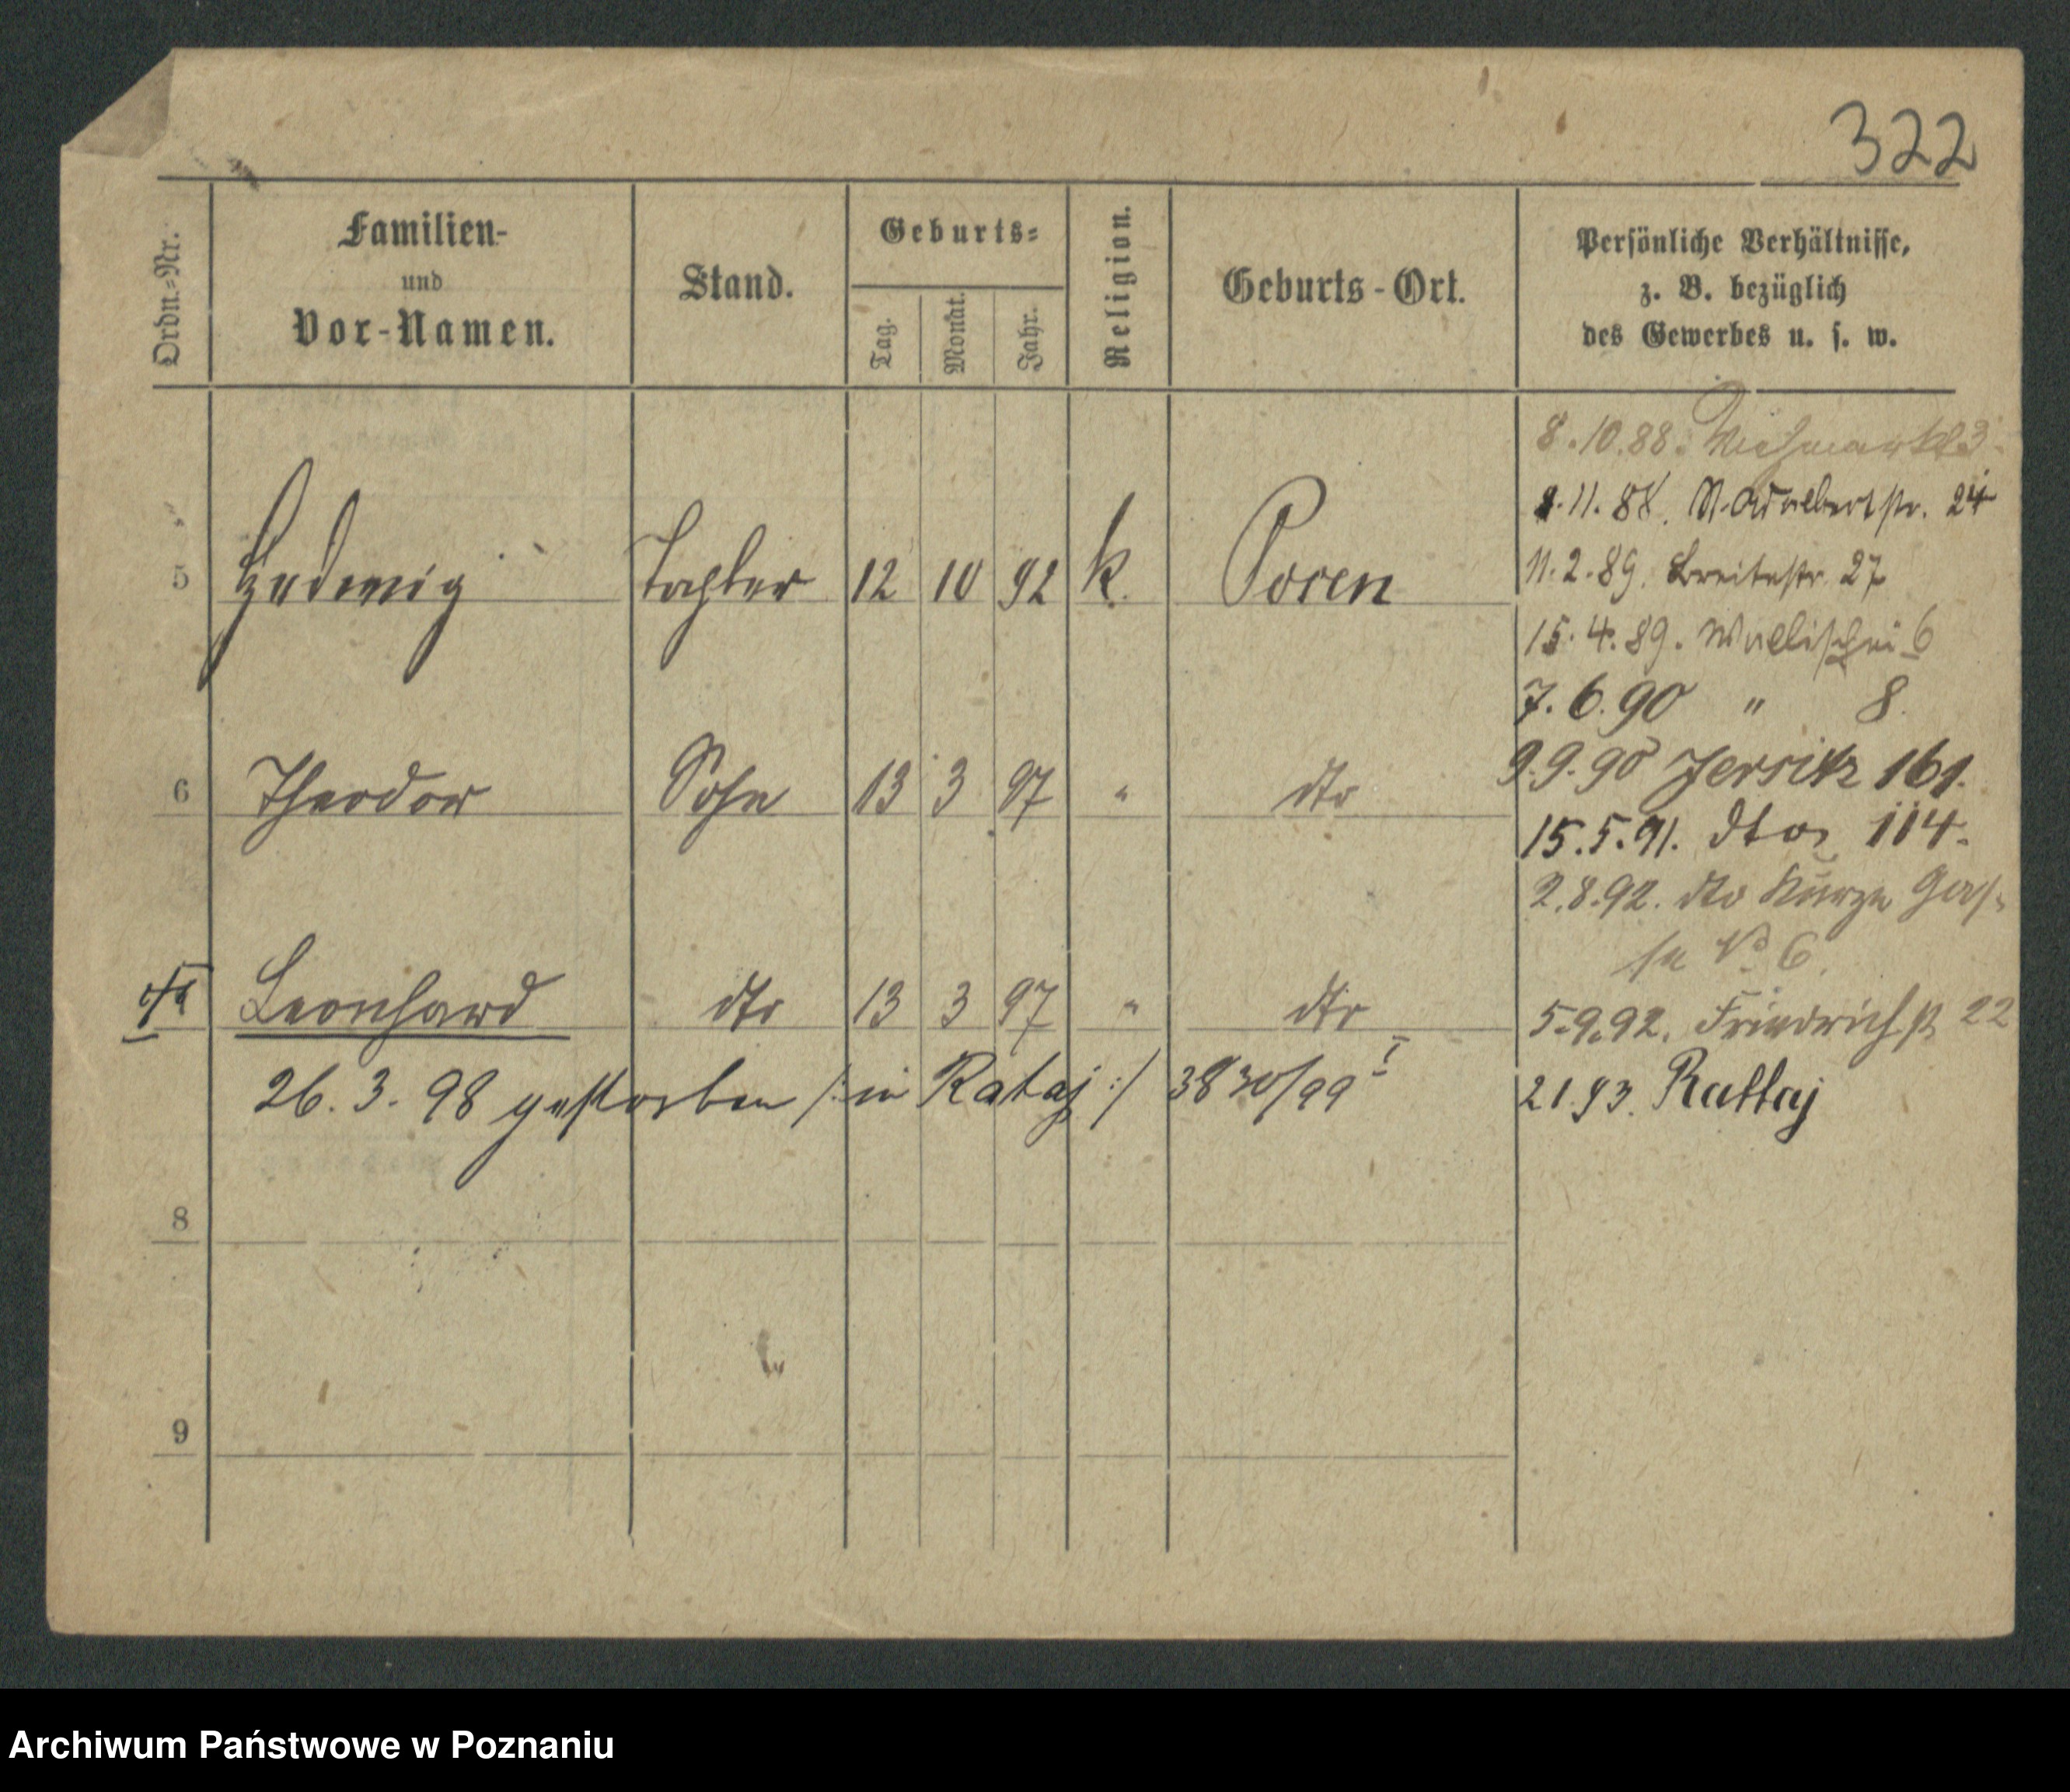 322
Ordn.-Nr.
Familien-
und
Vor-Namen.
Stand.
Geburts-
Tag.
Monat.
Jahr.
Religion.
Geburts-Ort.
Persönliche Verhältnisse,
z. B. bezüglich
des Gewerbes u. s. w.
8.10.88. Viehmarkt 3.
11.88. St. Adalbertstr. 24
11.2.89. Breitestr. 27
15.4.89. Wallischei 6
7.6.90 " 8.
9.9.90 Jersitz 161.
15.5.91. dto 114.
2.8.92. dto Kurze Gas-
se No 6.
5.9.92. Friedrichst 22
21.93. Rattaj
5 Hedwig Tochter 12 10 92 k. Posen
6 Theodor Sohn 13 3 97 " dto
Leonhard dto 13 3 97 " dto
26. 3. 98 gestorben /: in Rataj :/ 3830/99 I
8
9
Archiwum Państwowe w Poznaniu